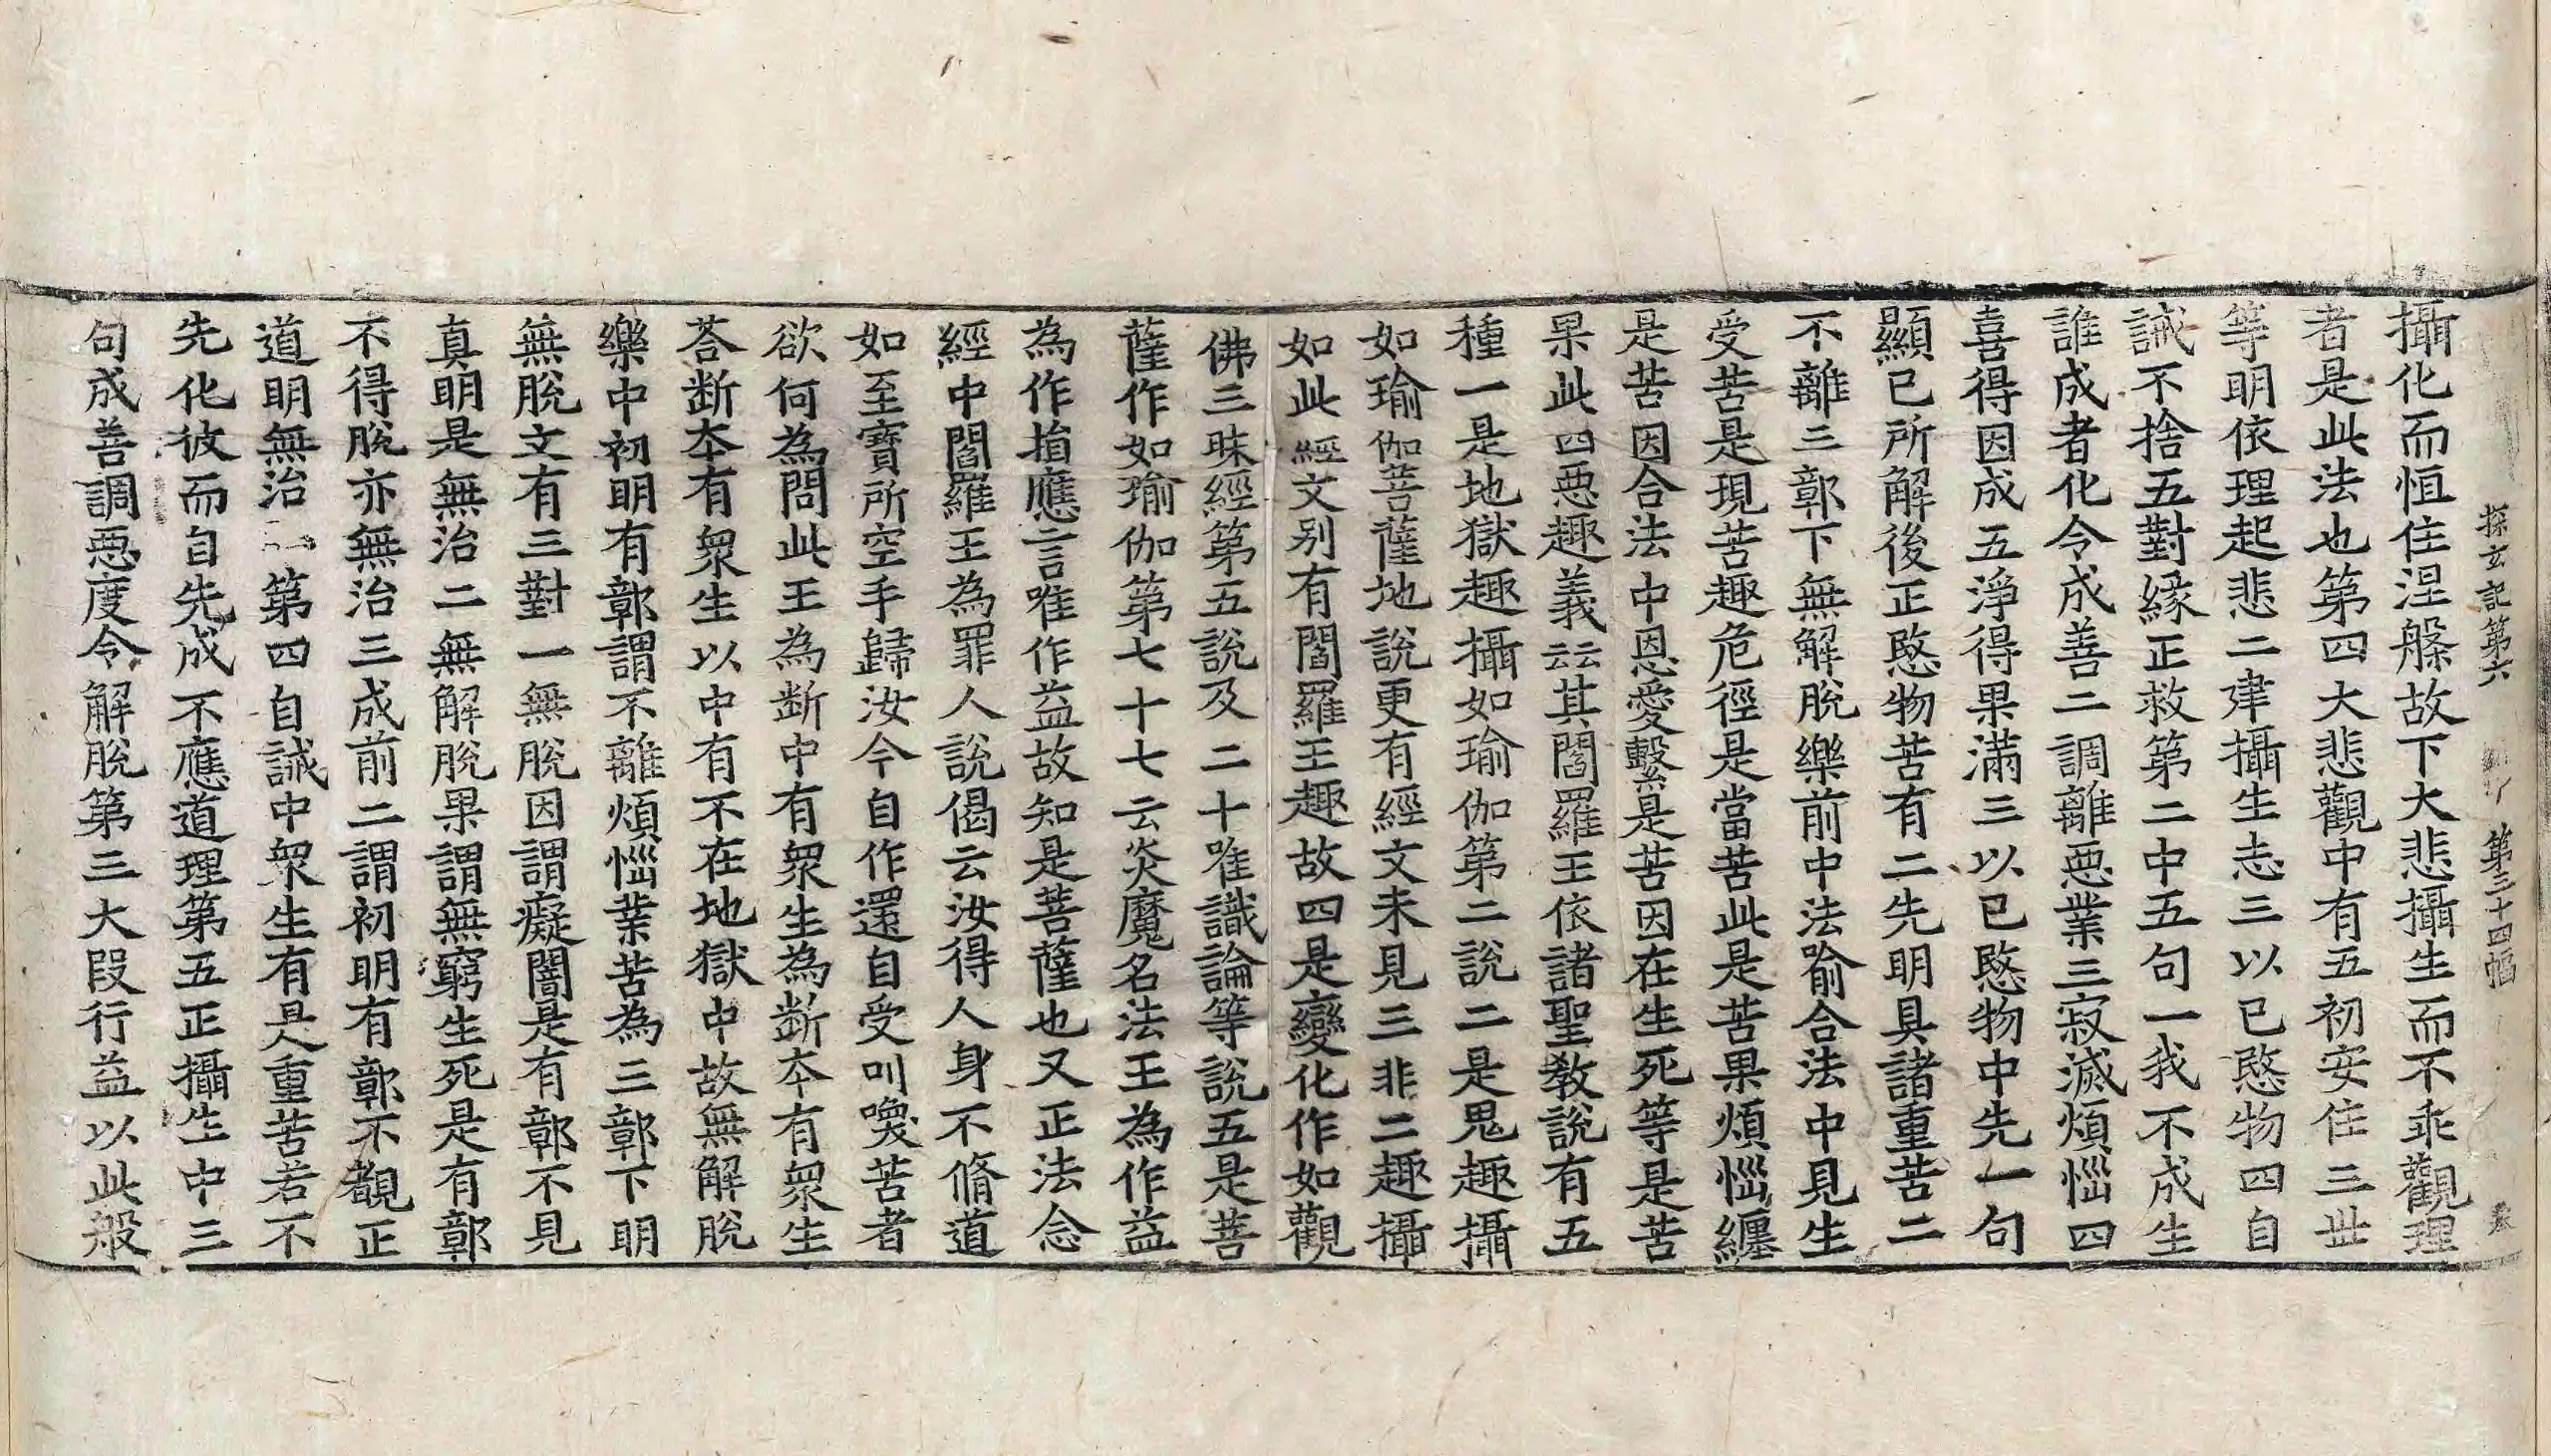 探玄記第六　第三十四幅
攝化而恒住涅槃故下大悲攝生而不乖觀理
者是此法也第四大悲觀中有五初安住三世
等明依理起悲二建攝生志三以已愍物四自
誡不捨五對緣正救第二中五句一我不成生
誰成者化令成善二調離惡業三寂滅煩惱四
喜得因成五淨得果滿三以已愍物中先一句
顯已所解後正愍物苦有二先明具諸重苦二
不離三鄣下無解脫樂前中法喻合法中見生
受苦是現苦趣危徑是當苦此是苦果煩惱纏
是苦因合法中恩愛繫是苦因在生死等是苦
果此四惡趣義云云其閻羅王依諸聖教說有五
種一是地獄趣攝如瑜伽第二說二是鬼趣攝
如瑜伽菩薩地說更有經文未見三非二趣攝
如此經文別有閻羅王趣故四是變化作如觀
佛三昧經第五說及二十唯識論等說五是菩
薩作如瑜伽第七十七云炎魔名法王為作益
為作損應言唯作益故知是菩薩也又正法念
經中閻羅王為罪人說偈云汝得人身不脩道
如至寶所空手歸汝今自作還自受叫喚苦者
欲何為問此王為斷中有眾生為斷本有眾生
荅斷本有眾生以中有不在地獄中故無解脫
樂中初明有鄣謂不離煩惱業苦為三鄣下明
無脫文有三對一無脫因謂癡闇是有鄣不見
真明是無治二無解脫果謂無窮生死是有鄣
不得脫亦無治三成前二謂初明有鄣不觀正
道明無治二第四自誡中眾生有是重苦若不
先化彼而自先成不應道理第五正攝生中三
句成善調惡度令解脫第三大段行益以此般